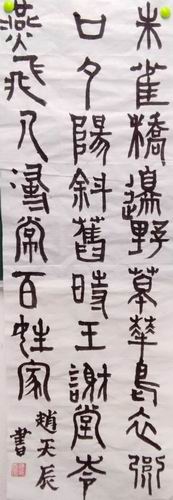 朱雀橋邊野草華烏衣巷
口夕陽斜舊時王謝堂前
燕飛入尋常百姓家
趙天辰
書